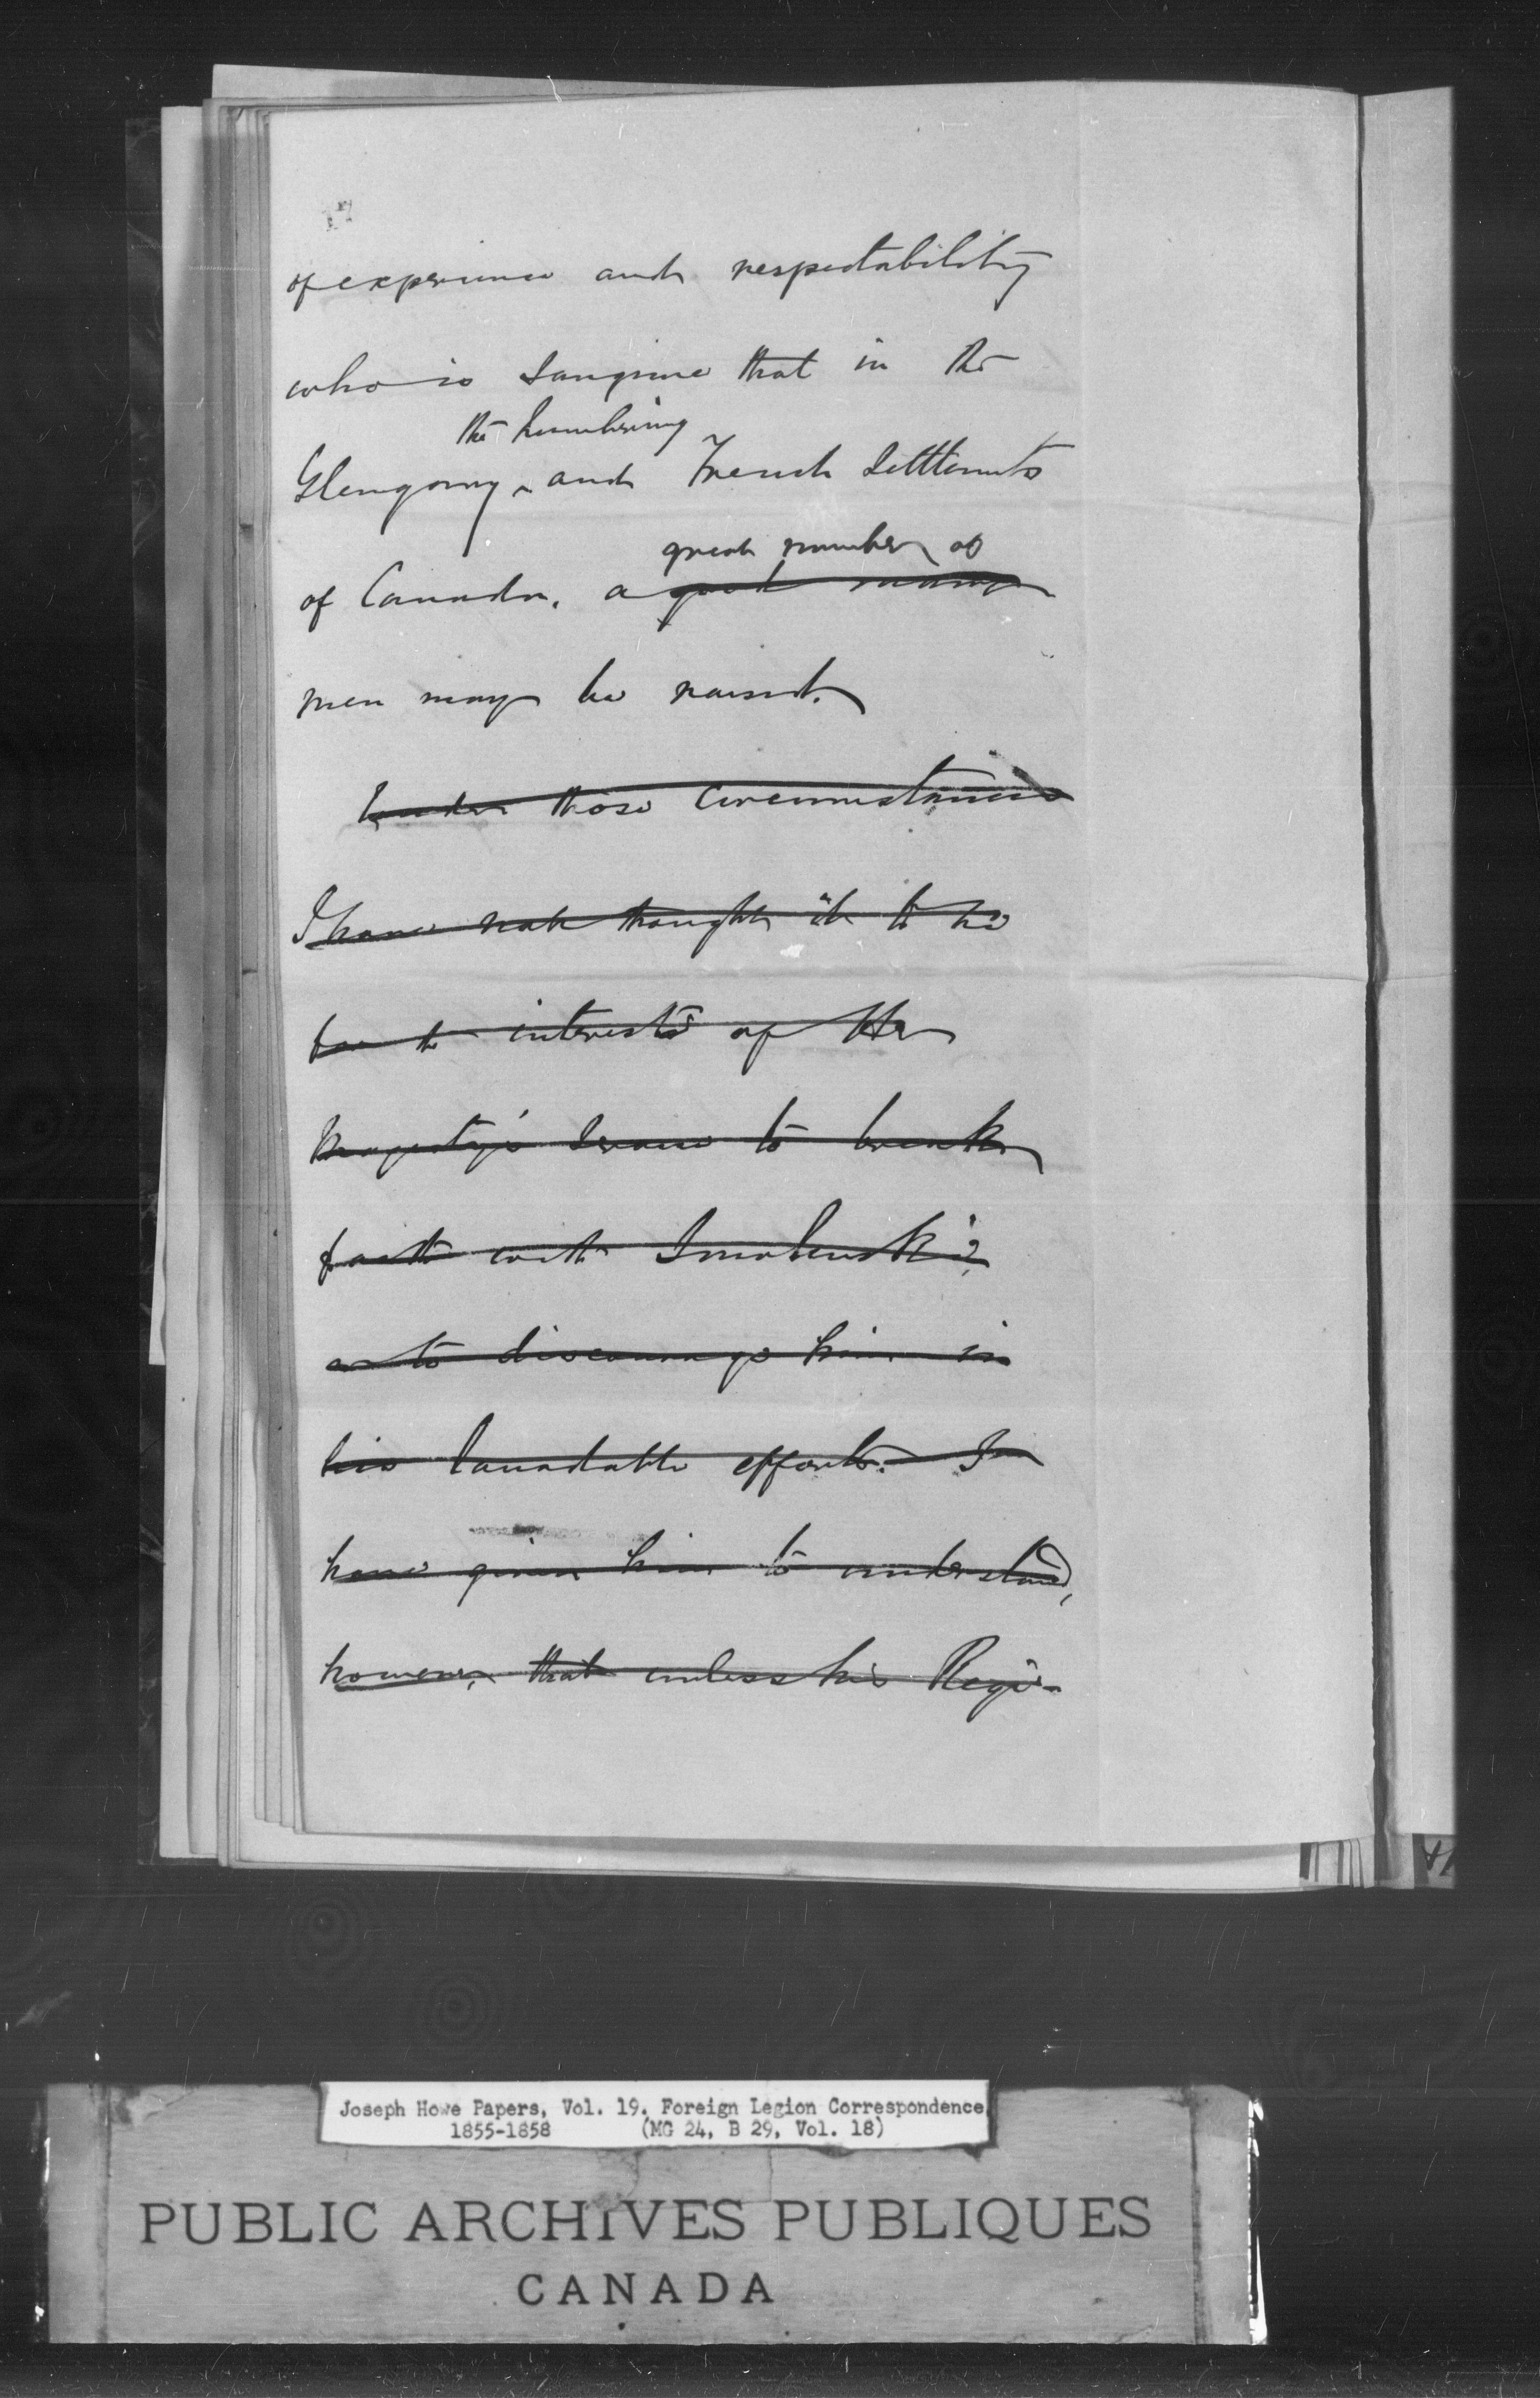 of experience and respectability
who is sanguine that in the
the Lumbering
Glengarry ^ and French Settlements
of Canada, a good many
great number of
men may be raised.
Under those Circumstances
I have not thought it to be
for the interests of Her
Majesty's Service to break
faith with Smolenski,
or to discourage him in
his laudable efforts. I
have given him to understand,
however, that unless his Regi-
Joseph Howe Papers, Vol. 19. Foreign Legion Correspondence,
1855-1858 (MG 24, B 29, Vol. 18)
PUBLIC ARCHIVES PUBLIQUES
CANADA